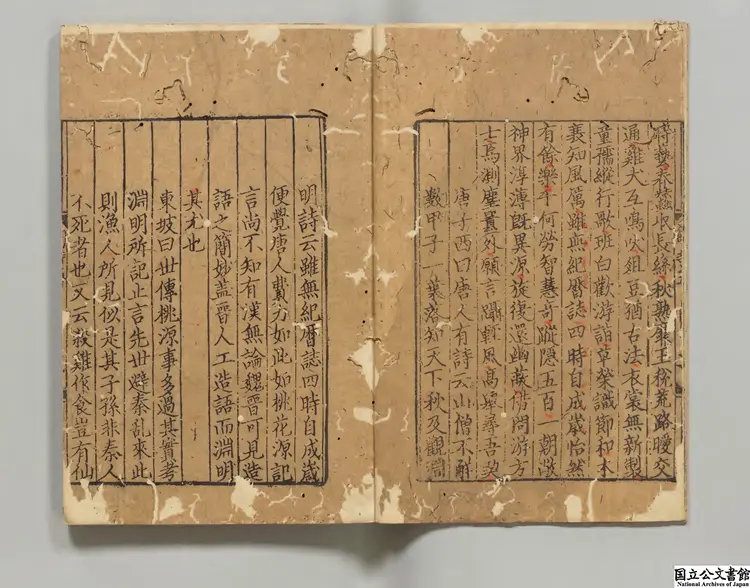 時藝春蠶收長絲秋熟靡王稅荒路曖交
通雞犬互鳴吠俎豆猶古法衣裳無新製
童孺縱行歌班白歡游詣草榮識節和木
衰知風厲雖無紀曆誌四時自成歲怡然
有餘樂于何勞智慧奇蹤隱五百一朝敞
神界淳薄既異源旋復還幽蔽借問游方
士焉測塵囂外願言躡輕風高舉尋吾契
唐子西曰唐人有詩云山僧不解
數甲子一葉落知天下秋及觀淵
明詩云雖無紀曆誌四時自成歲
便覺唐人費力如此如桃花源記
言尚不知有漢無論魏晉可見造
語之簡妙蓋晉人工造語而淵明
其尤也
東坡曰世傳桃源事多過其實考
淵明所記止言先世避秦亂來此
則漁人所見似是其子孫非秦人
不死者也又云殺雞作食豈有仙
国立公文書館
National Archives of Japan